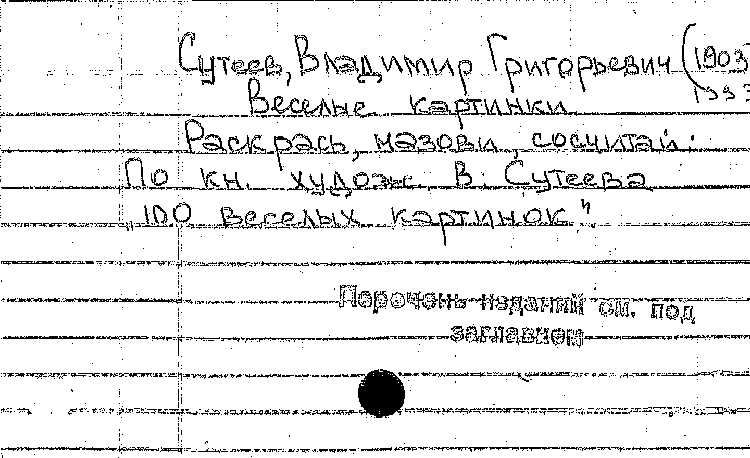 Сутеев, Владимир Григорьевич (1903-
1993
Веселые картинки
Раскрась, назови, сосчитай:
По кн. худож. В. Сутеева
"100 веселых картинок"
Перечень изданий см. под
заглавием